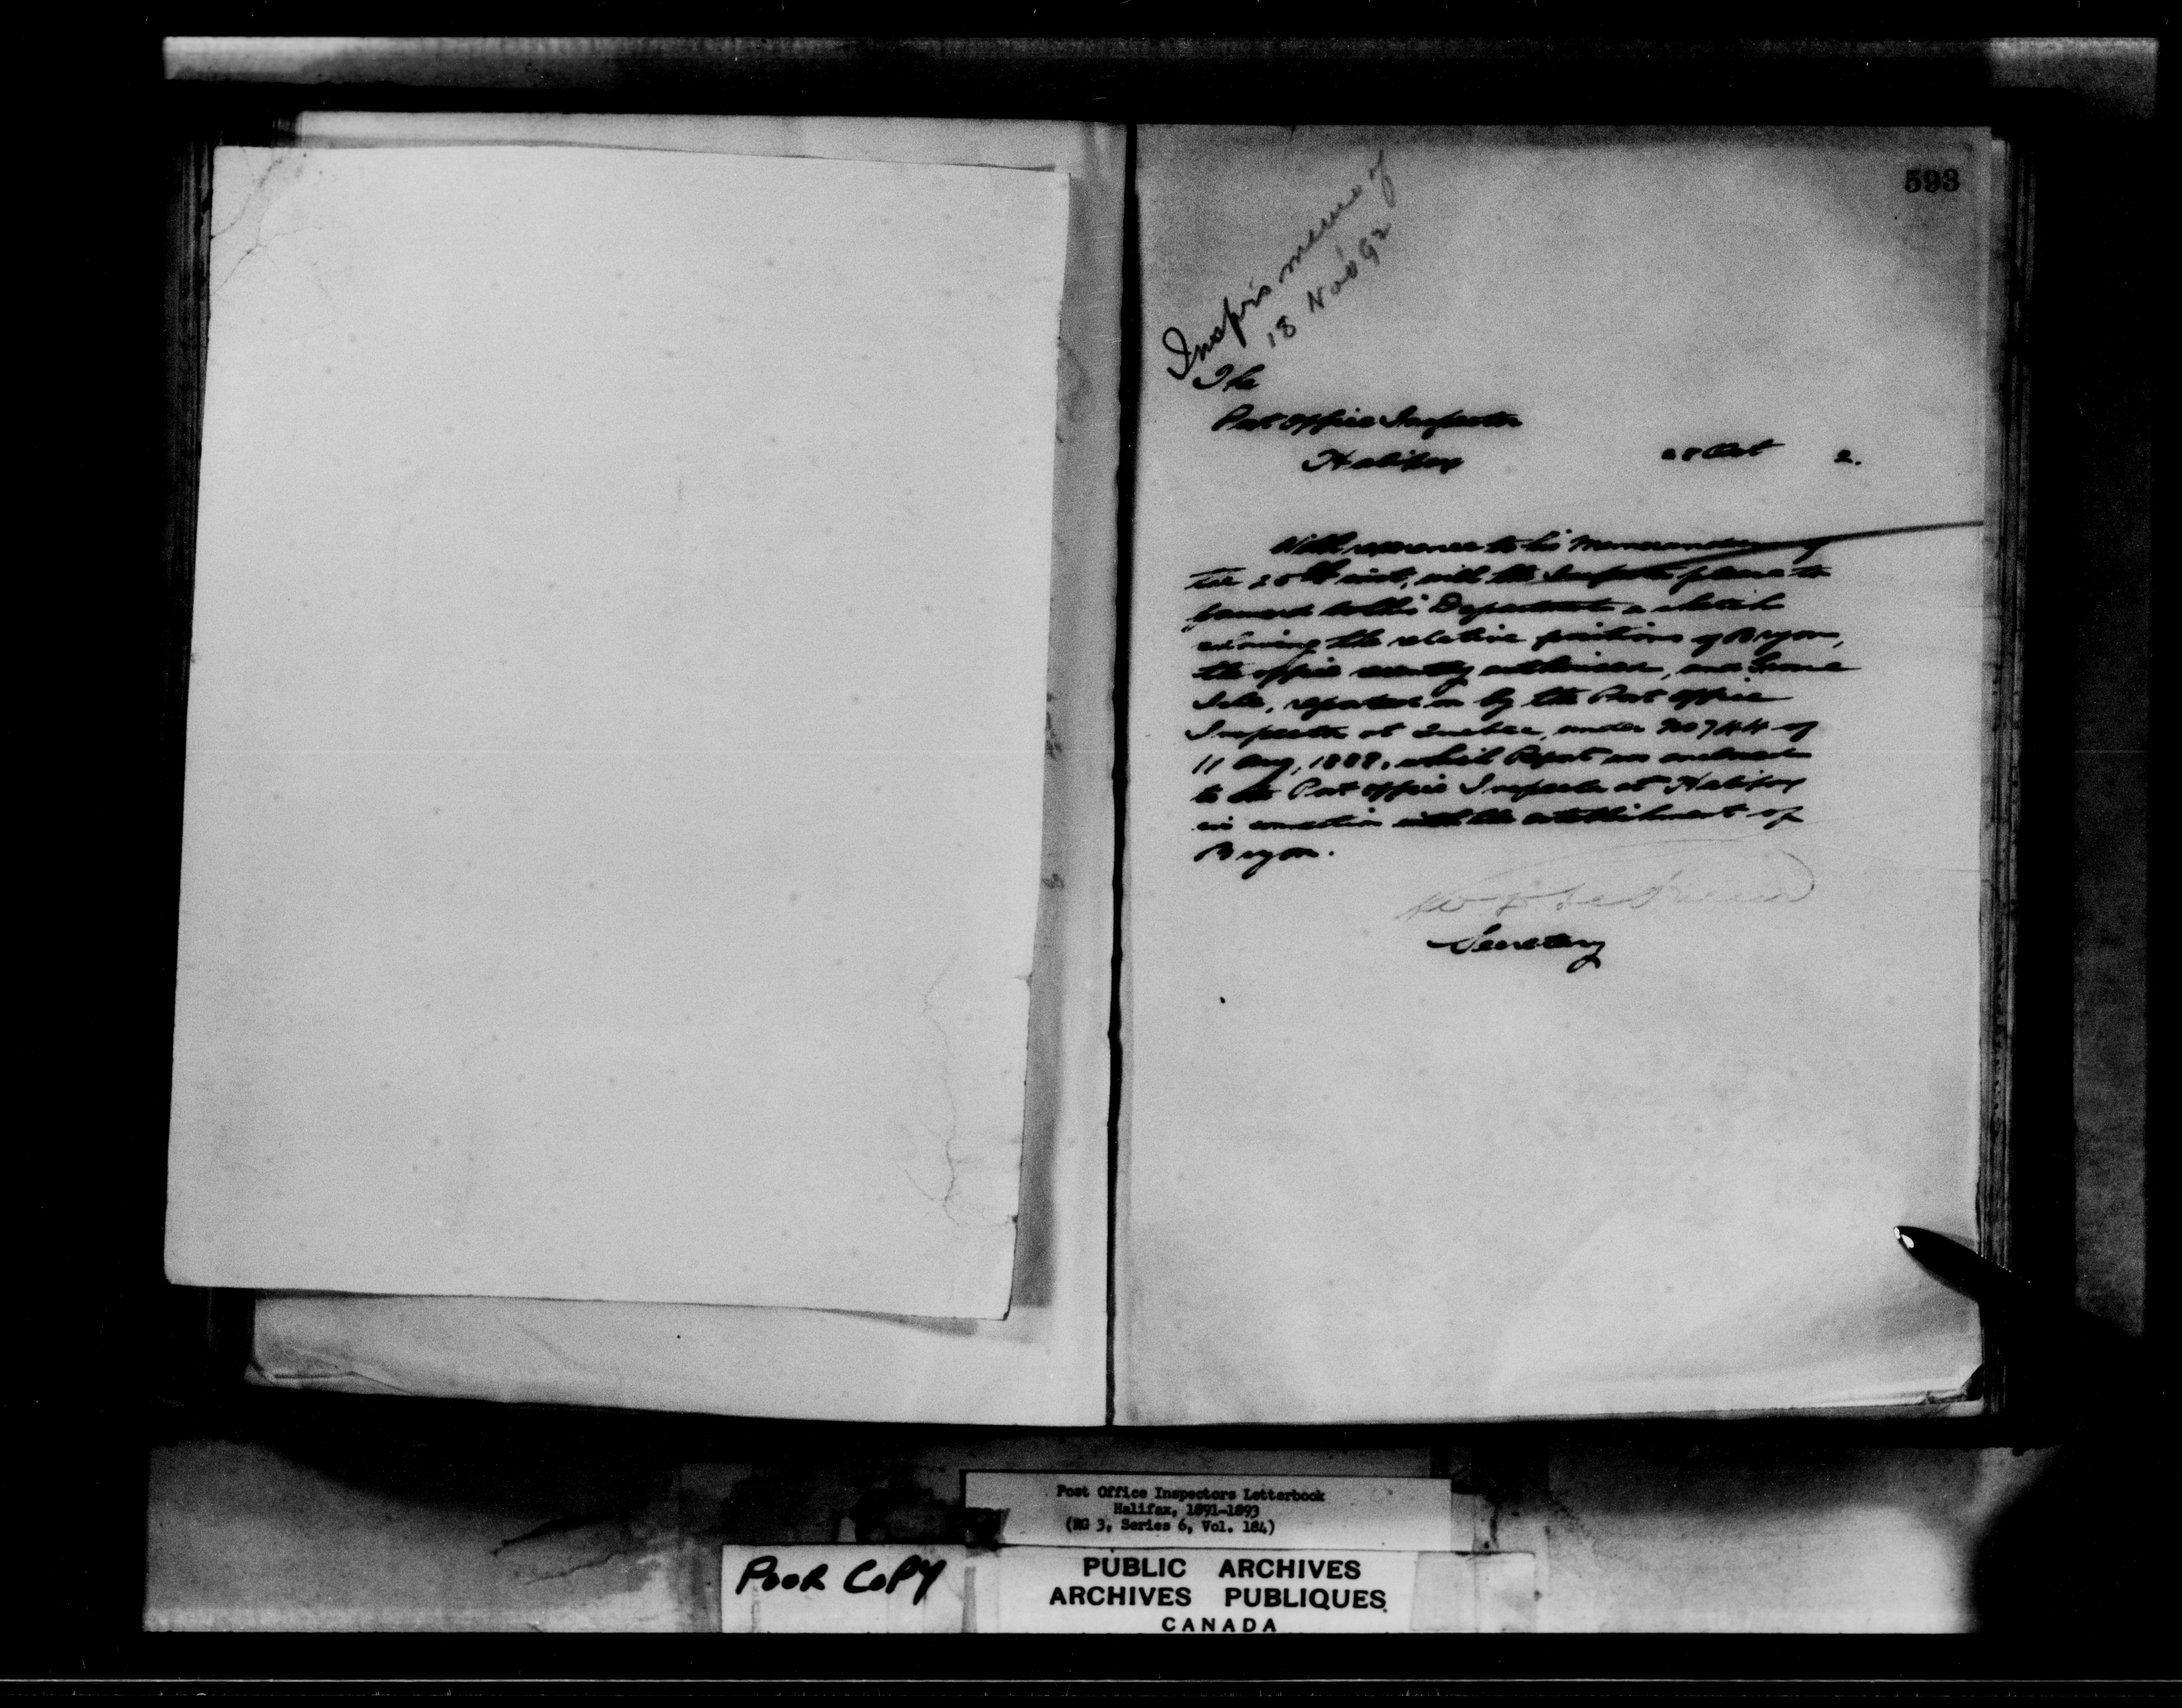 593
Inspr's memo of
18 Nov 92
The
Post Office Inspector
Halifax
28 Oct 2.
With reference to his Memorandum of
the 25th inst, will the Inspector please to
forward to this Department a sketch
showing the relative positions of Bryon,
the office recently authorised, and
Isle, reported on by the Post Office
Inspector at Quebec, under No 744 of
11 Aug, 1888, which Report was enclosed
to the Post Office Inspector at Halifax
in connection with the establishment of
Bryon.
Secretary
Post Office Inspectors Letterbook
Halifax, 1891-1893
(RG 3, Series 6, Vol. 184)
POOR COPY
PUBLIC ARCHIVES
ARCHIVES PUBLIQUES
CANADA